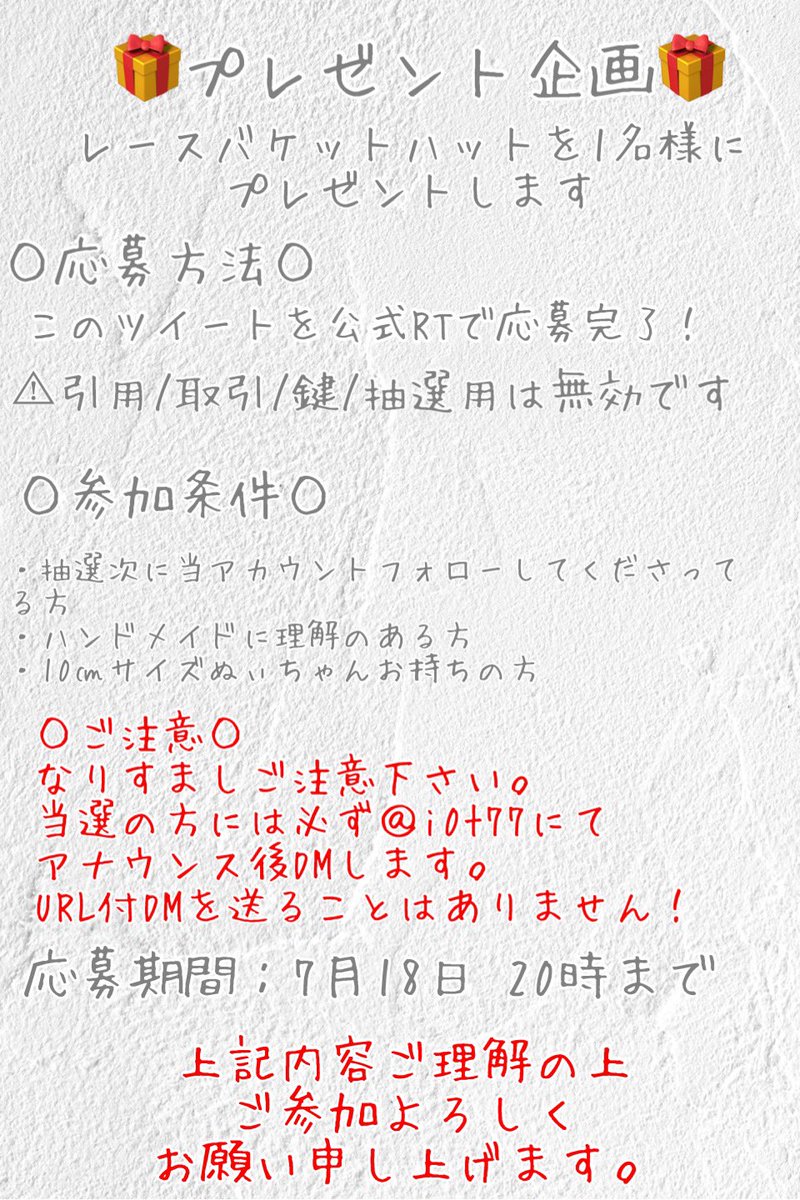 🎁プレゼント企画🎁
レースバケットハットを1名様に
プレゼントします
〇応募方法〇
このツイートを公式RTで応募完了!
⚠引用/取引/鍵/抽選用は無効です
〇参加条件〇
・抽選次に当アカウントフォローしてくださって
る方
・ハンドメイドに理解のある方
・10㎝サイズぬぃちゃんお持ちの方
〇ご注意〇
なりすましご注意下さい。
当選の方には必ず@i0t77にて
アナウンス後DMします。
URL付DMを送ることはありません!
応募期間:7月18日 20時まで
上記内容ご理解の上
ご参加よろしく
お願い申し上げます。